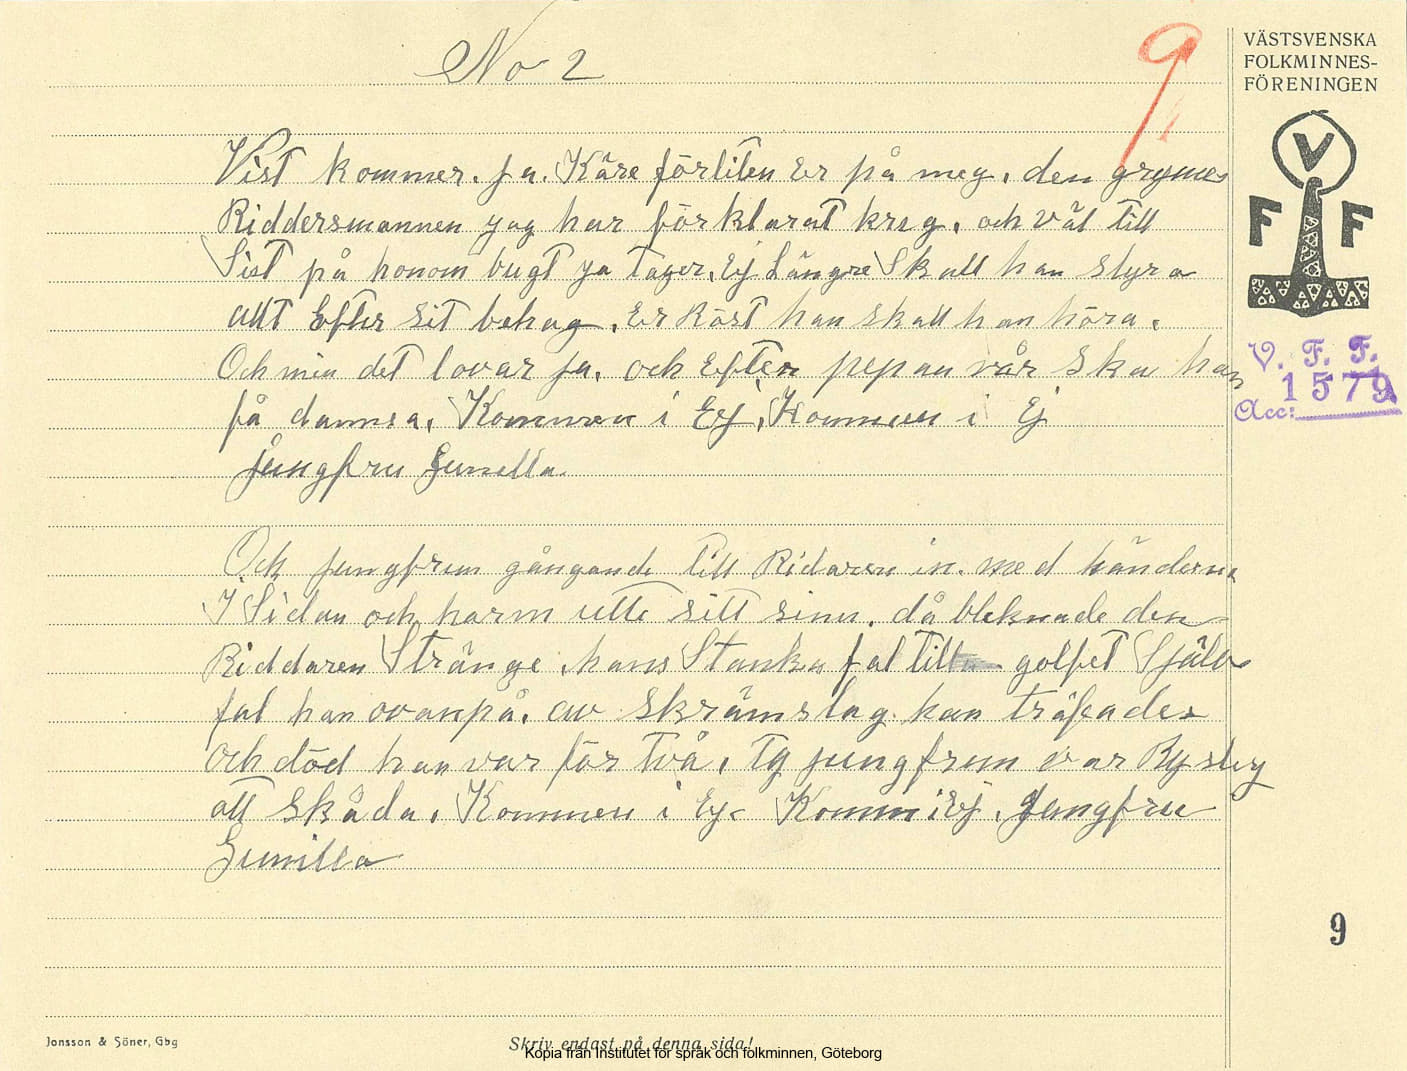 No 2
9
VÄSTSVENSKA
FOLKMINNES-
FÖRENINGEN
V
F F
Vist kommer. ja. Käre förliten Er på meg. den grymes
Riddersmannen jag har förklarat kreg. och väl till
Sist på honom bugt ja tager. Ej Längre Skall han styra
allt Efter sit behag. Er Röst han skall han höra.
Och min det lovar ja. och Efter pepan vår Ska han
få dannsa. Kommen i Ej. Kommen i Ej
jungfru Gunella.
V. F. F.
1579
Acc:
Och jungfrun gångande till Ridaren in. med händerna
I Sidan och harm utti sitt sinn. då bleknade den
Riddaren Stränge. hans Stanka fal till golfvet Själv
fal han ovanpå. av skrämslag han träfades
och död han var för två. Ty jungfrun var Ryslig
att skåda. Kommen i Ej. Komm i Ej. Jungfru
Gunilla
9
Jonsson & Söner, Gbg
Skriv endast på denna sida!
Kopia från Institutet för språk och folkminnen, Göteborg